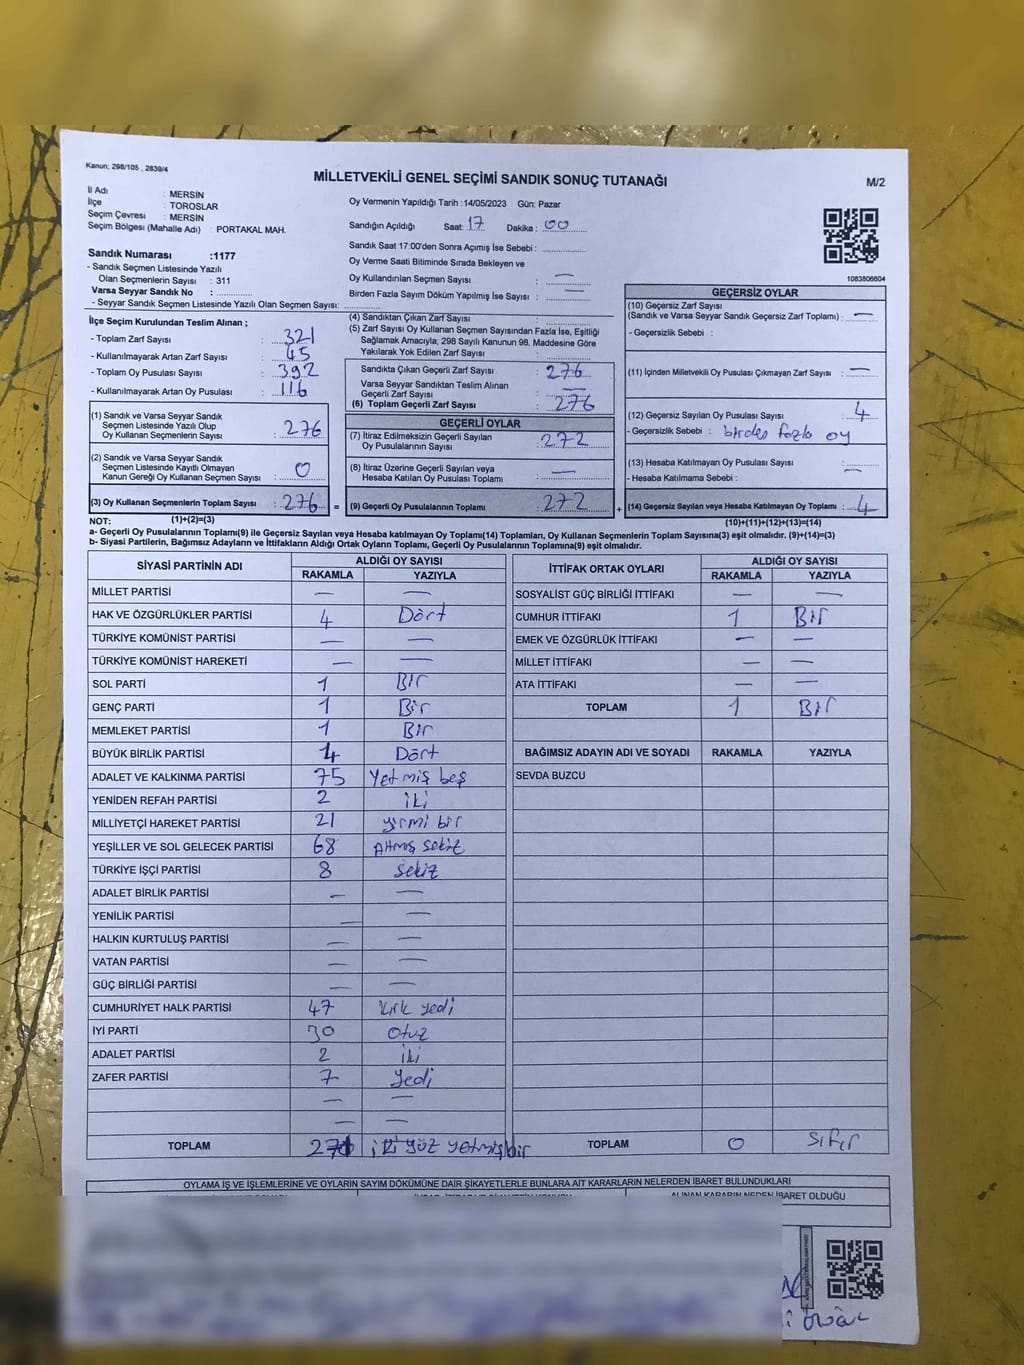 Kanun; 298/105 , 2839/4
MİLLETVEKİLİ GENEL SEÇİMİ SANDIK SONUÇ TUTANAĞI
M/2
İl Adı : MERSİN
İlçe : TOROSLAR
Seçim Çevresi : MERSİN
Seçim Bölgesi (Mahalle Adı) : PORTAKAL MAH.
Sandık Numarası :1177
- Sandık Seçmen Listesinde Yazılı
Olan Seçmenlerin Sayısı : 311
Varsa Seyyar Sandık No :
- Seyyar Sandık Seçmen Listesinde Yazılı Olan Seçmen Sayısı:
Oy Vermenin Yapıldığı Tarih :14/05/2023 Gün: Pazar
Sandığın Açıldığı Saat: 17 Dakika : 00
Sandık Saat 17:00'den Sonra Açımış İse Sebebi :
Oy Verme Saati Bitiminde Sırada Bekleyen ve
Oy Kullandırılan Seçmen Sayısı : —
Birden Fazla Sayım Döküm Yapılmış İse Sayısı : —
1083806604
İlçe Seçim Kurulundan Teslim Alınan ;
- Toplam Zarf Sayısı : 321
- Kullanılmayarak Artan Zarf Sayısı : 45
- Toplam Oy Pusulası Sayısı : 392
- Kullanılmayarak Artan Oy Pusulası : 116
(1) Sandık ve Varsa Seyyar Sandık
Seçmen Listesinde Yazılı Olup
Oy Kullanan Seçmenlerin Sayısı : 276
(2) Sandık ve Varsa Seyyar Sandık
Seçmen Listesinde Kayıtlı Olmayan
Kanun Gereği Oy Kullanan Seçmen Sayısı : 0
(3) Oy Kullanan Seçmenlerin Toplam Sayısı : 276 =
(4) Sandıktan Çıkan Zarf Sayısı :
(5) Zarf Sayısı Oy Kullanan Seçmen Sayısından Fazla İse, Eşitliği
Sağlamak Amacıyla, 298 Sayılı Kanunun 98. Maddesine Göre
Yakılarak Yok Edilen Zarf Sayısı :
Sandıkta Çıkan Geçerli Zarf Sayısı : 276
Varsa Seyyar Sandıktan Teslim Alınan
Geçerli Zarf Sayısı : —
(6) Toplam Geçerli Zarf Sayısı : 276
GEÇERLİ OYLAR
(7) İtiraz Edilmeksizin Geçerli Sayılan
Oy Pusulalarının Sayısı : 272
(8) İtiraz Üzerine Geçerli Sayılan veya
Hesaba Katılan Oy Pusulası Toplamı : —
(9) Geçerli Oy Pusulalarının Toplamı : 272 +
GEÇERSİZ OYLAR
(10) Geçersiz Zarf Sayısı
(Sandık ve Varsa Seyyar Sandık Geçersiz Zarf Toplamı) : —
- Geçersizlik Sebebi :
(11) İçinden Milletvekili Oy Pusulası Çıkmayan Zarf Sayısı : —
(12) Geçersiz Sayılan Oy Pusulası Sayısı : 4
- Geçersizlik Sebebi : birden fazla oy
(13) Hesaba Katılmayan Oy Pusulası Sayısı : —
- Hesaba Katılmama Sebebi :
(14) Geçersiz Sayılan veya Hesaba Katılmayan Oy Toplamı : 4
NOT: (1)+(2)=(3)
(10)+(11)+(12)+(13)=(14)
a- Geçerli Oy Pusulalarının Toplamı(9) ile Geçersiz Sayılan veya Hesaba katılmayan Oy Toplamı(14) Toplamları, Oy Kullanan Seçmenlerin Toplam Sayısına(3) eşit olmalıdır. (9)+(14)=(3)
b- Siyasi Partilerin, Bağımsız Adayların ve İttifakların Aldığı Ortak Oyların Toplamı, Geçerli Oy Pusulalarının Toplamına(9) eşit olmalıdır.
SİYASİ PARTİNİN ADI ALDIĞI OY SAYISI
RAKAMLA YAZIYLA
MİLLET PARTİSİ — —
HAK VE ÖZGÜRLÜKLER PARTİSİ 4 Dört
TÜRKİYE KOMÜNİST PARTİSİ — —
TÜRKİYE KOMÜNİST HAREKETİ — —
SOL PARTİ 1 Bir
GENÇ PARTİ 1 Bir
MEMLEKET PARTİSİ 1 Bir
BÜYÜK BİRLİK PARTİSİ 4 Dört
ADALET VE KALKINMA PARTİSİ 75 Yetmiş beş
YENİDEN REFAH PARTİSİ 2 iki
MİLLİYETÇİ HAREKET PARTİSİ 21 yirmi bir
YEŞİLLER VE SOL GELECEK PARTİSİ 68 Altmış sekiz
TÜRKİYE İŞÇİ PARTİSİ 8 Sekiz
ADALET BİRLİK PARTİSİ — —
YENİLİK PARTİSİ — —
HALKIN KURTULUŞ PARTİSİ — —
VATAN PARTİSİ — —
GÜÇ BİRLİĞİ PARTİSİ — —
CUMHURİYET HALK PARTİSİ 47 kırk yedi
İYİ PARTİ 30 otuz
ADALET PARTİSİ 2 iki
ZAFER PARTİSİ 7 Yedi
— —
— —
TOPLAM 271 iki yüz yetmiş bir
İTTİFAK ORTAK OYLARI ALDIĞI OY SAYISI
RAKAMLA YAZIYLA
SOSYALİST GÜÇ BİRLİĞİ İTTİFAKI — —
CUMHUR İTTİFAKI 1 Bir
EMEK VE ÖZGÜRLÜK İTTİFAKI — —
MİLLET İTTİFAKI — —
ATA İTTİFAKI — —
TOPLAM 1 Bir
BAĞIMSIZ ADAYIN ADI VE SOYADI RAKAMLA YAZIYLA
SEVDA BUZCU
TOPLAM 0 sıfır
OYLAMA İŞ VE İŞLEMLERİNE VE OYLARIN SAYIM DÖKÜMÜNE DAİR ŞİKAYETLERLE BUNLARA AİT KARARLARIN NELERDEN İBARET BULUNDUKLARI
ALINAN KARARIN NEDEN İBARET OLDUĞU